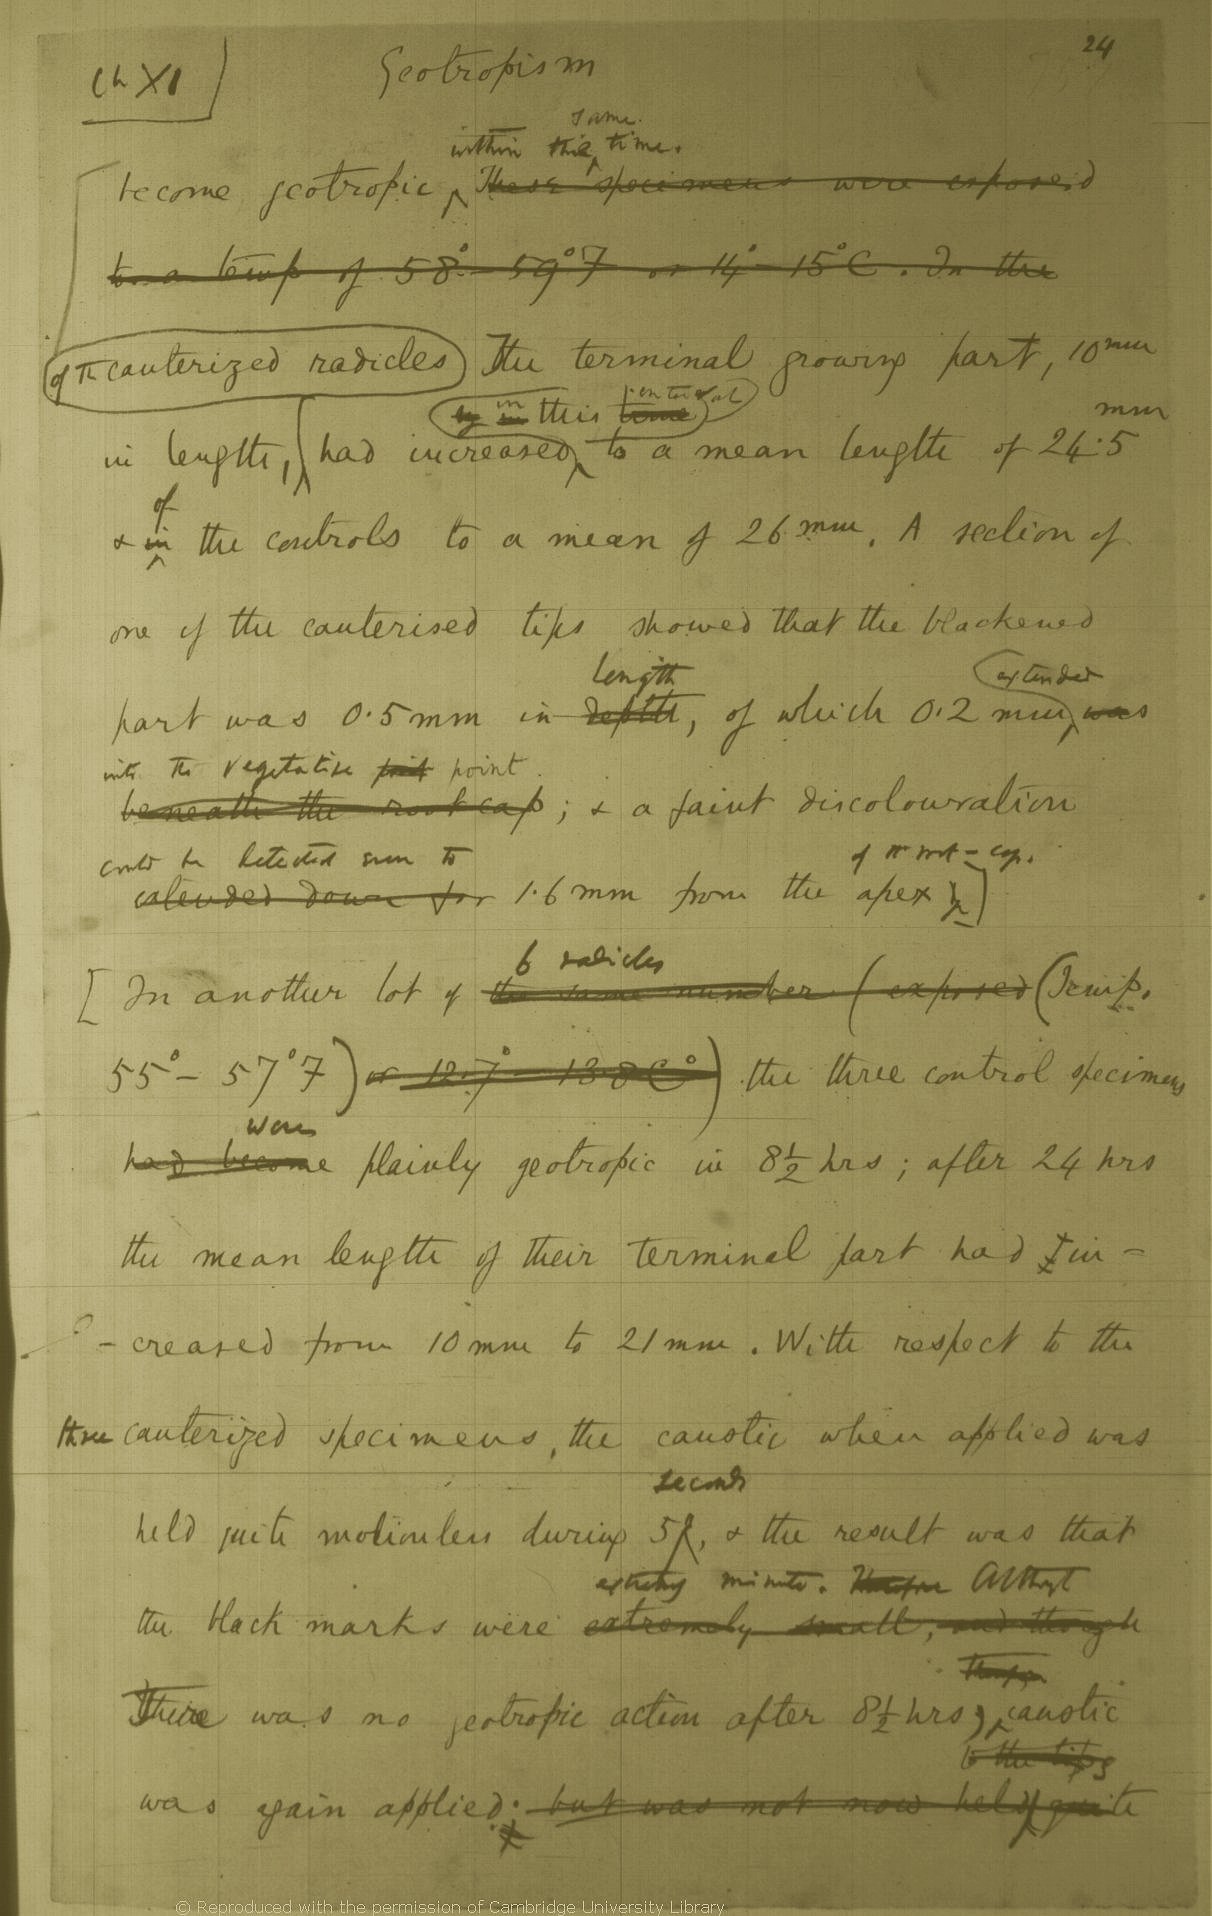 24
Ch XI
Geotropism
same.
within this time.
become geotropic These specimens were exposed
to a temp of 58° - 59° F or 14° - 15° C. In the
of the cauterized radicles The terminal growing part, 10 mm
in this time interval
mm
in length, had increased, to a mean length of 24.5
of
& in the controls to a mean of 26 mm. A section of
one of the cauterised tips showed that the blackened
length extended
part was 0.5 mm in depth, of which 0.2 mm was
into the vegetative point.
beneath the root cap; & a faint discolouration
could be detected even to of the root-cap.
extended down for 1.6 mm from the apex
6 radicles
[In another lot of the same number (exposed (Temp.
55° - 57° F) or 12.7° - 13.8 C°) the three control specimens
were
had become plainly geotropic in 8½ hrs; after 24 hrs
the mean length of their terminal part had in-
-creased from 10 mm to 21 mm. With respect to the
three cauterized specimens, the caustic when applied was
seconds
held quite motionless during 5", & the result was that
extremely minute. Therefore Although
the black marks were extremely small, and though
therefore
There was no geotropic action after 8½ hrs, caustic
to the tips
was again applied; but was not now held quite
© Reproduced with the permission of Cambridge University Library